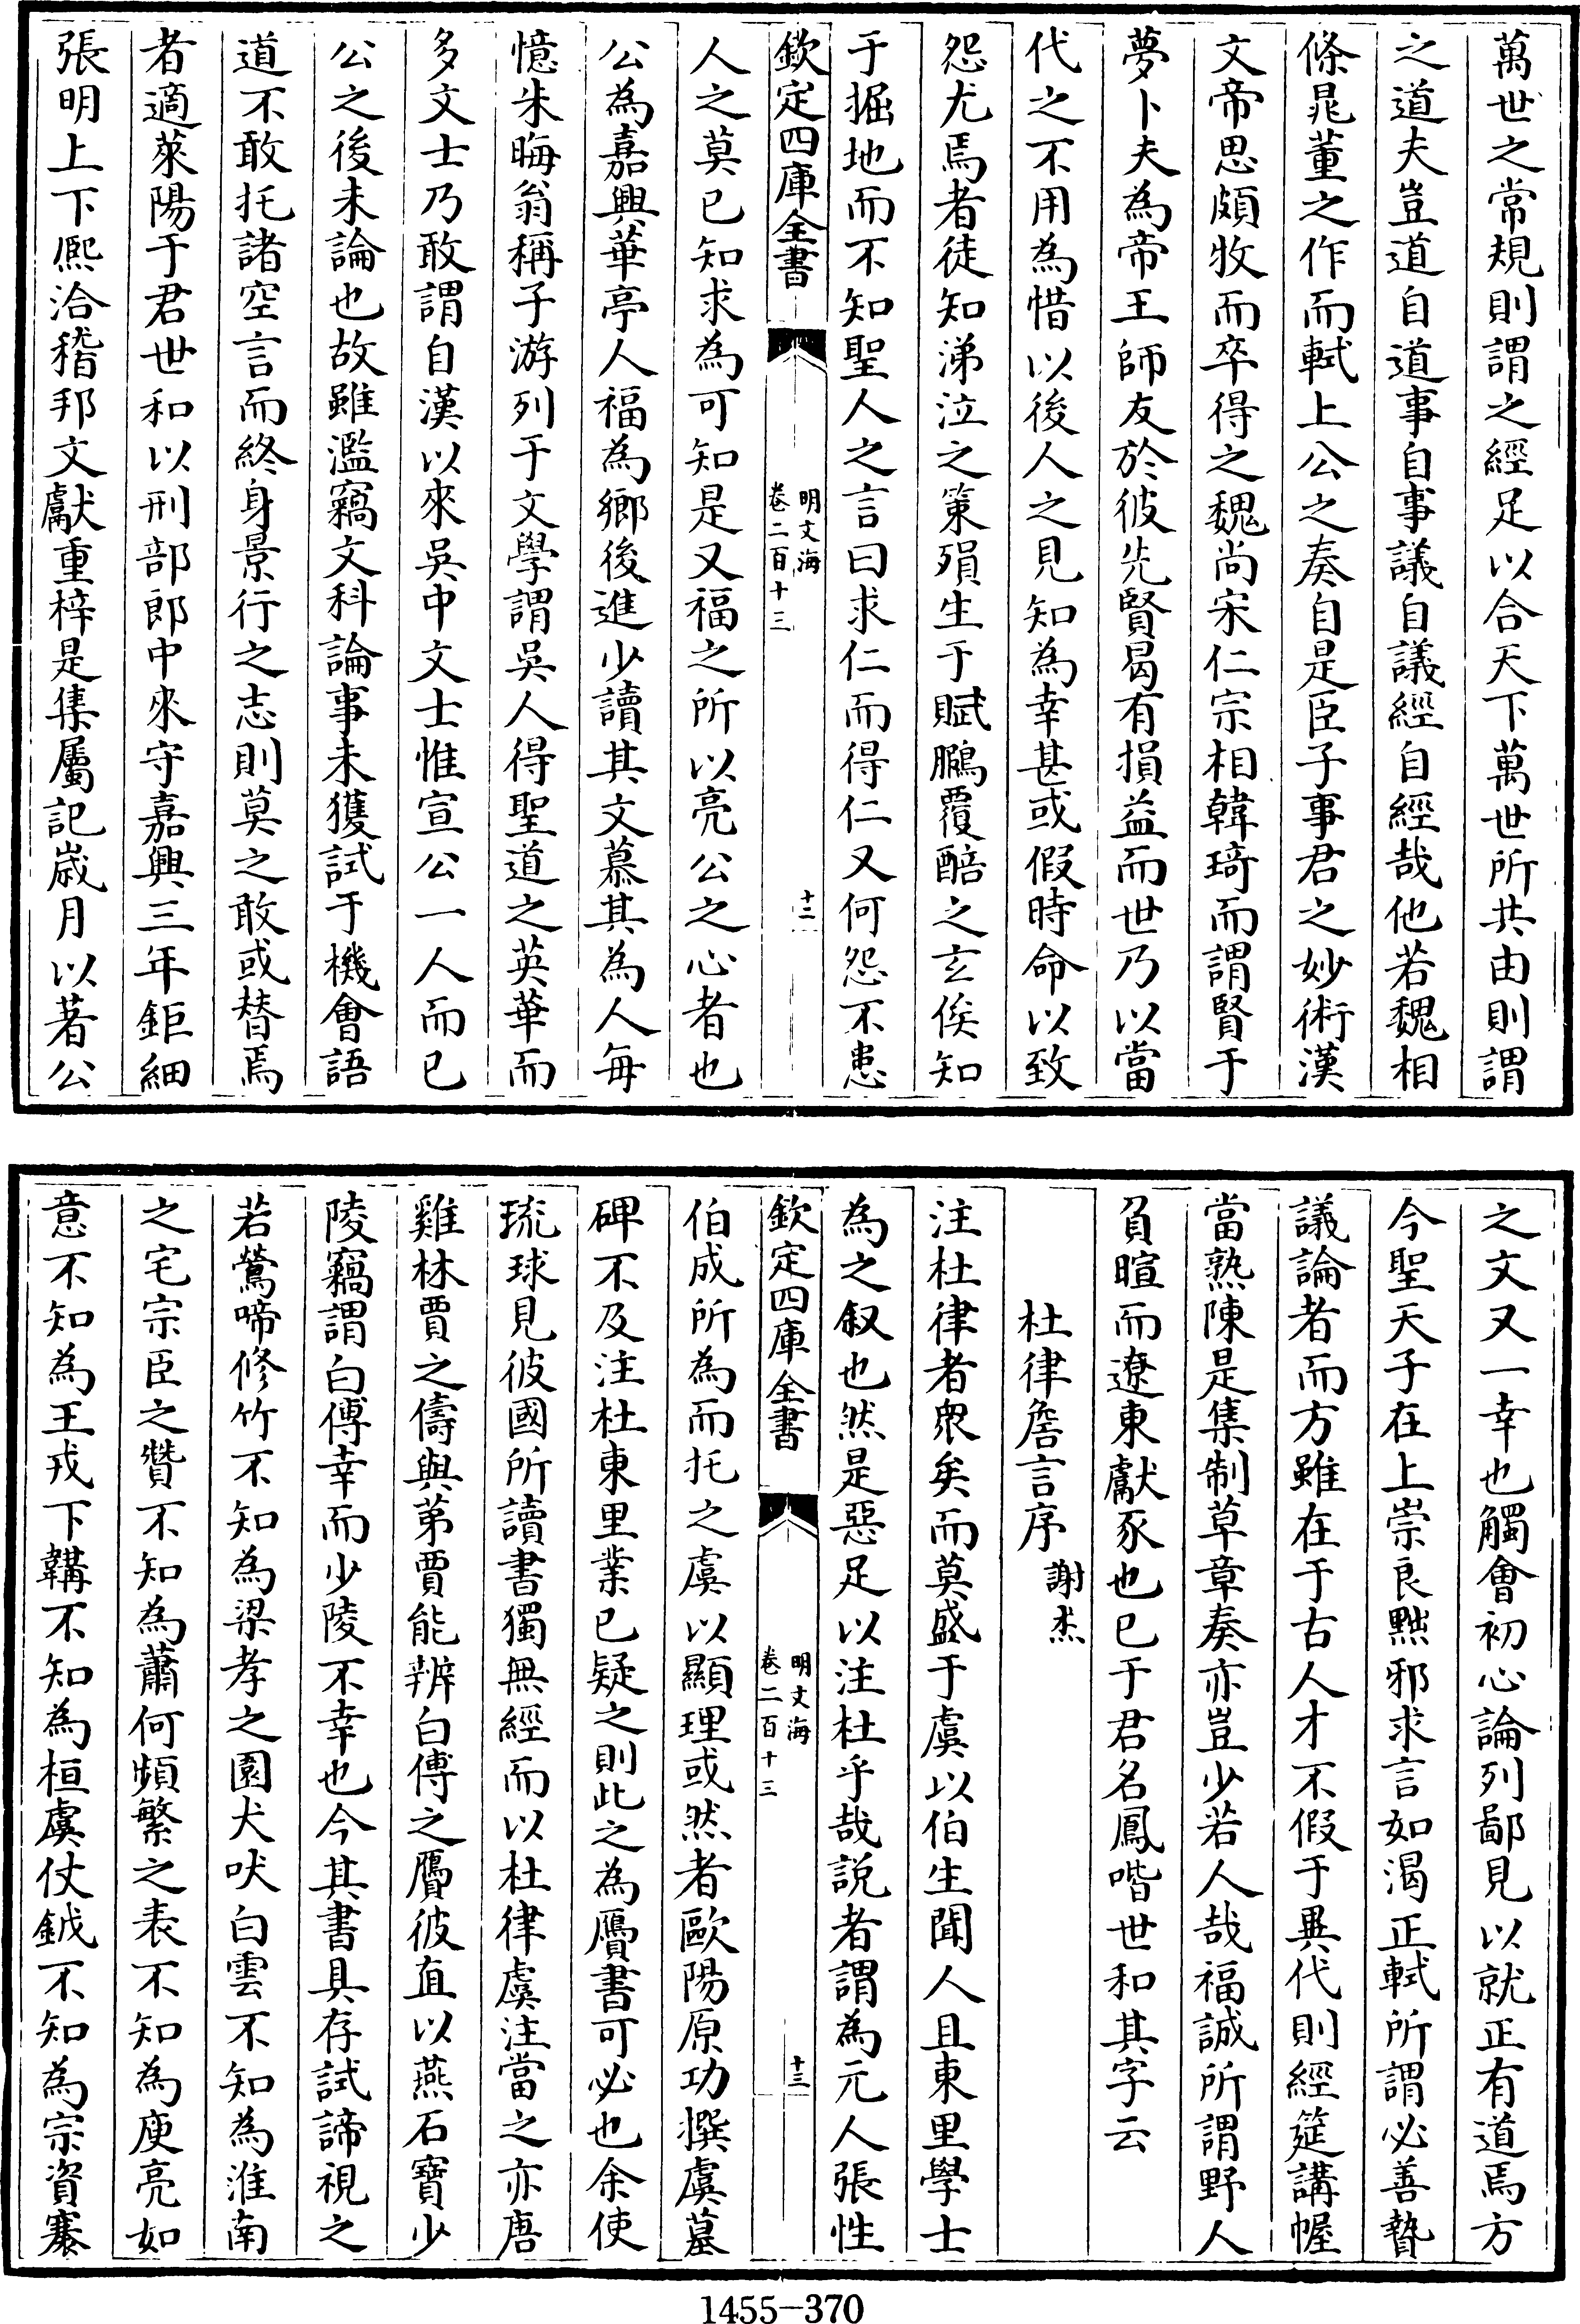 萬世之常規則謂之經足以合天下萬世所共由則謂
之道夫豈道自道事自事議自議經自經哉他若魏相
條晁董之作而軾上公之奏自是臣子事君之妙術漢
文帝思頗牧而卒得之魏尚宋仁宗相韓琦而謂賢于
夢卜夫為帝王師友於彼先賢曷有損益而世乃以當
代之不用為惜以後人之見知為幸甚或假時命以致
怨尤焉者徒知涕泣之策殞生于賦鵬覆醅之玄俟知
于掘地而不知聖人之言曰求仁而得仁又何怨不患
欽定四庫全書
明文海
卷二百十三
十二
人之莫已知求為可知是又福之所以亮公之心者也
公為嘉興華亭人福為鄉後進少讀其文慕其為人每
憶朱晦翁稱子游列于文學謂吳人得聖道之英華而
多文士乃敢謂自漢以來吳中文士惟宣公一人而已
公之後未論也故雖濫竊文科論事未獲試于機會語
道不敢托諸空言而終身景行之志則莫之敢或替焉
者適萊陽于君世和以刑部郎中來守嘉興三年鉅細
張明上下熈洽稽邦文獻重梓是集屬記歳月以著公
之文又一幸也觸會初心論列鄙見以就正有道焉方
今聖天子在上崇良黜邪求言如渴正軾所謂必善贄
議論者而方雖在于古人才不假于異代則經筵講幄
當熟陳是集制草章奏亦豈少若人哉福誠所謂野人
負暄而遼東獻豕也已于君名鳳喈世和其字云
杜律詹言序
謝杰
注杜律者衆矣而莫盛于虞以伯生聞人且東里學士
為之叙也然是惡足以注杜乎哉説者謂為元人張性
欽定四庫全書
明文海
卷二百十三
十三
伯成所為而托之虞以顯理或然者歐陽原功撰虞墓
碑不及注杜東里業已疑之則此之為贋書可必也余使
琉球見彼國所讀書獨無經而以杜律虞注當之亦唐
雞林賈之儔與第賈能辨白傅之贋彼直以燕石寶少
陵竊謂白傅幸而少陵不幸也今其書具存試諦視之
若鶯啼修竹不知為梁孝之園犬吠白雲不知為淮南
之宅宗臣之贊不知為蕭何頻繁之表不知為庾亮如
意不知為王戎下韝不知為桓虞仗鉞不知為宗資褰
1455-370